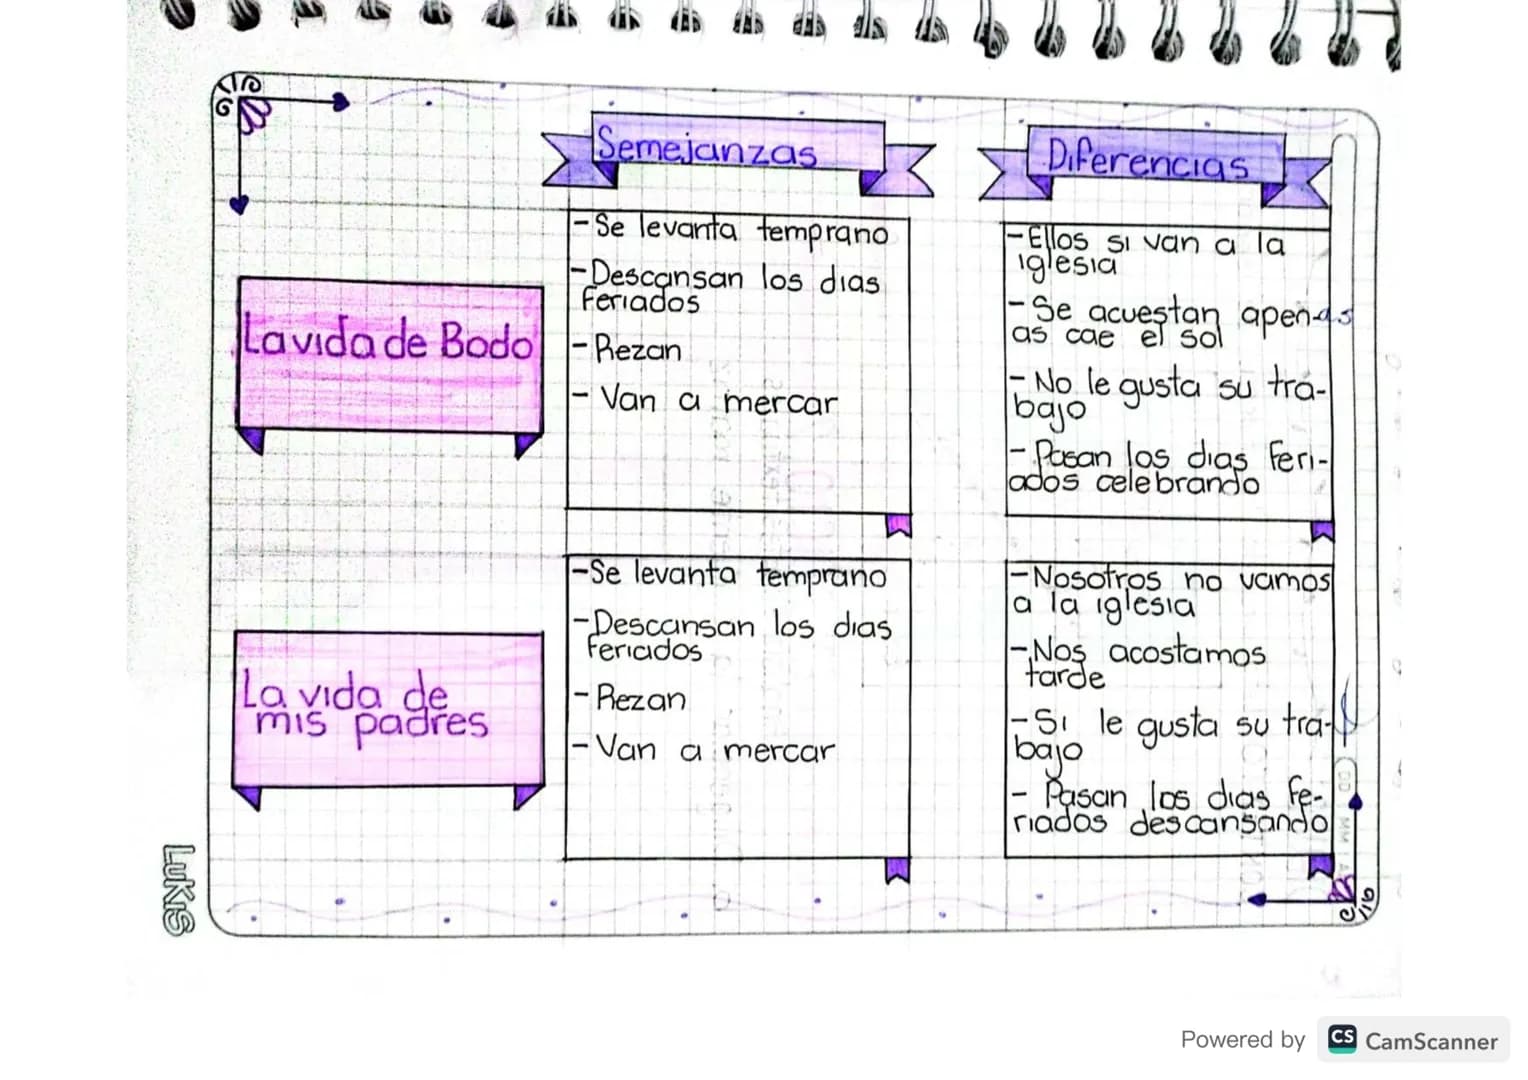 Semejanzas
Diferencias
La vida de Bodo
- Se levanta temprano
- Descansan los dias
feriados
- Rezan
- Van a mercar
- Ellos si van a la
iglesia
- Se acuestan apen-as
as cae el sol
- No le gusta su tra-
bajo
- Pasan los dias feri-
ados celebrando
La vida de
mis padres
- Se levanta temprano
- Descansan los dias
feriados
- Rezan
- Van a mercar
- Nosotros no vamos
a la iglesia
- Nos acostamos
tarde
- Si le gusta su tra-
bajo
- Pasan los dias fe-
riados descansando
LUKIS
DD MM
Powered by CS CamScanner